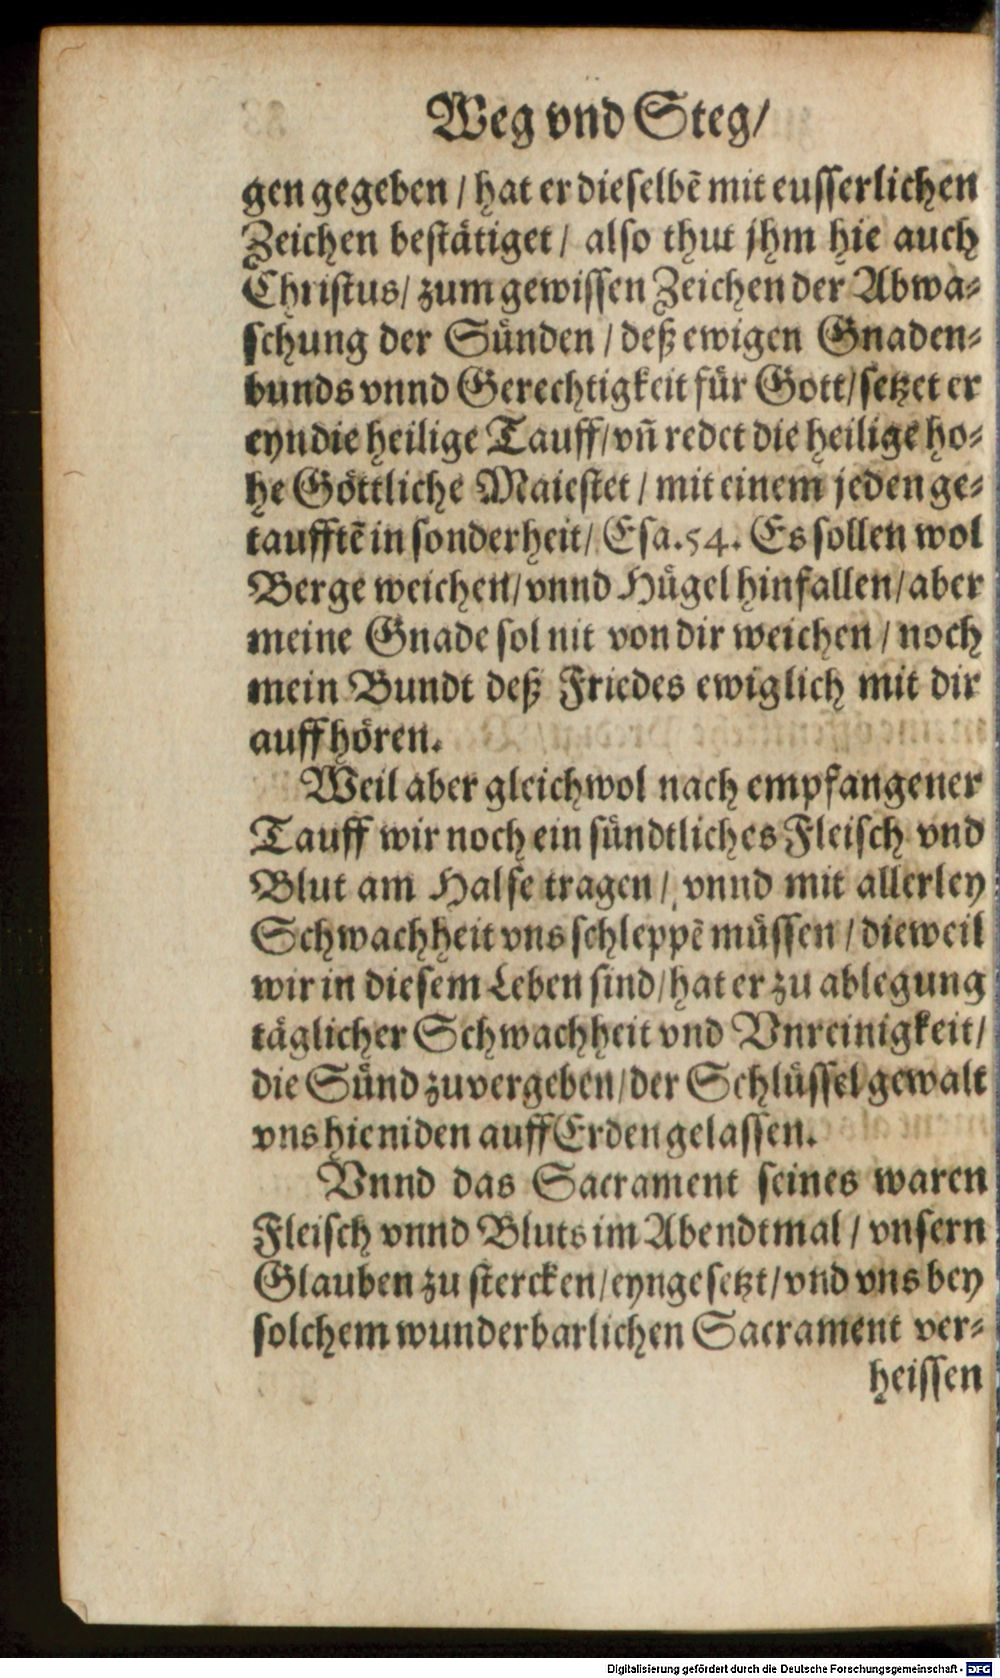 Weg vnd Steg/
gen gegeben / hat er dieselbẽ mit eusserlichen
Zeichen bestätiget / also thut jhm hie auch
Christus / zum gewissen Zeichen der Abwa⸗
schung der Sünden / deß ewigen Gnaden⸗
bunds vnnd Gerechtigkeit für Gott / setzet er
eyn die heilige Tauff / vñ redet die heilige ho⸗
he Göttliche Maiestet / mit einem jeden ge⸗
taufftẽ in sonderheit / Esa. 54. Es sollen wol
Berge weichen / vnnd Hügel hinfallen / aber
meine Gnade sol nit von dir weichen / noch
mein Bundt deß Friedes ewiglich mit dir
auffhören.
Weil aber gleichwol nach empfangener
Tauff wir noch ein sündtliches Fleisch vnd
Blut am Halse tragen / vnnd mit allerley
Schwachheit vns schleppẽ müssen / dieweil
wir in diesem Leben sind / hat er zu ablegung
täglicher Schwachheit vnd Vnreinigkeit /
die Sünd zuvergeben / der Schlüssel gewalt
vns hieniden auff Erden gelassen.
Vnnd das Sacrament seines waren
Fleisch vnnd Bluts im Abendtmal / vnsern
Glauben zu stercken / eyngesetzt / vnd vns bey
solchem wunderbarlichen Sacrament ver⸗
heissen
Digitalisierung gefördert durch die Deutsche Forschungsgemeinschaft - DFG